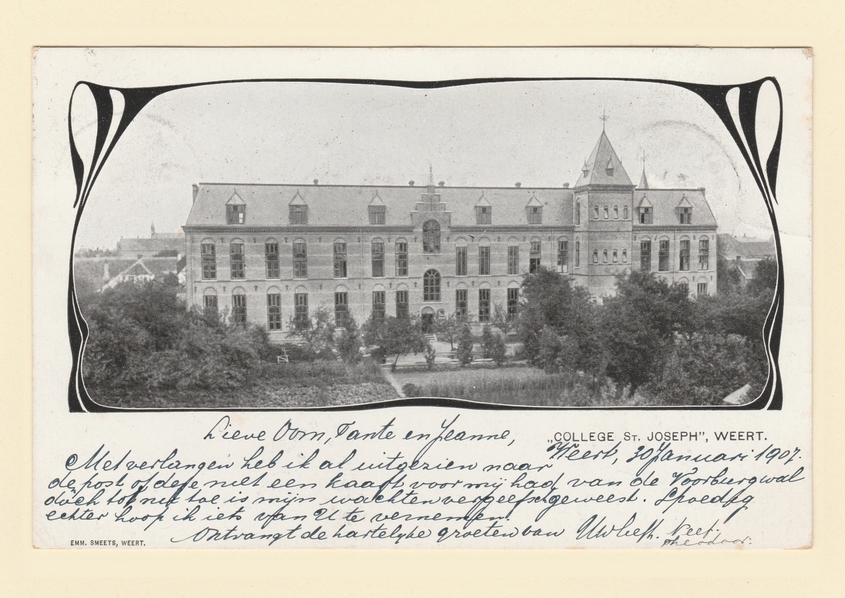 „COLLEGE ST. JOSEPH”, WEERT.
Lieve Oom, Tante en Jeanne,
Weert, 30 Januari 1907.
Met verlangen heb ik al uitgezien naar
de post of deze niet een kaart voor mij had van de Voorburgwal
doch tot nu toe is mijn wachten vergeefsch geweest. Spoedig
echter hoop ik iets van U te vernemen.
Ontvangt de hartelijke groeten van Uw liefh. Neef.
Theodoor.
EMM. SMEETS, WEERT.